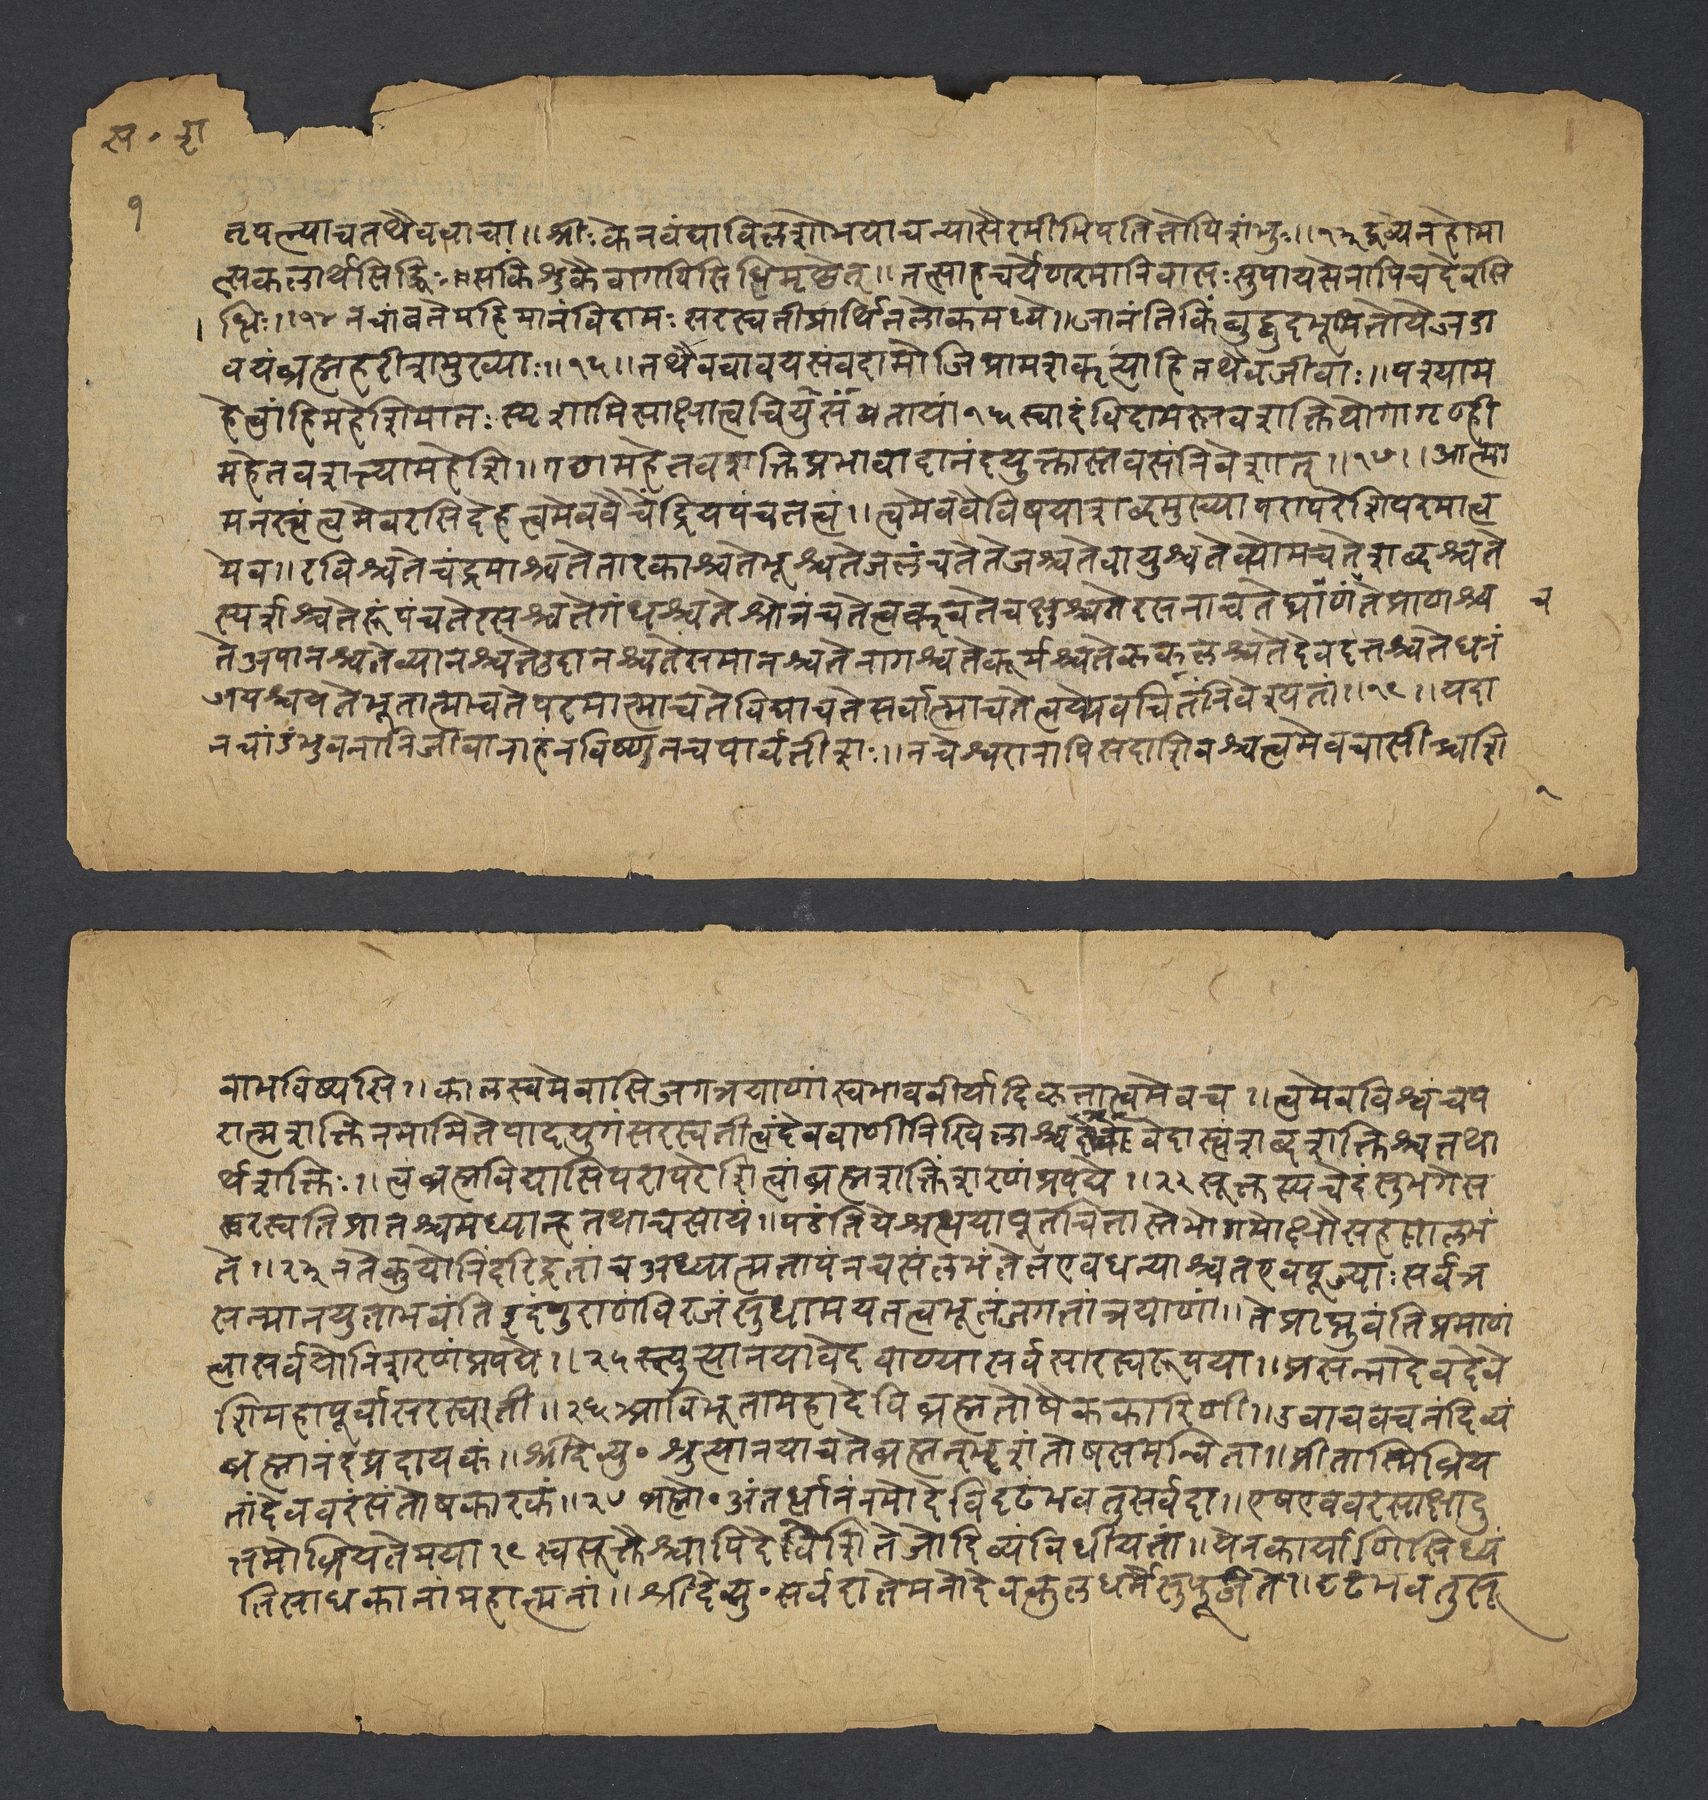 स॰ शा
१
तृपत्न्याच तथैव वाचा ॥ श्रीः केनवंद्याविलशोभयाचन्यासैरमीमिपतितोपिशंभुः ॥ १३ द्रव्येनहोमा
त्सकलार्थसिद्धिः सकिंशुकैवागपिसिद्धिमृछेत् ॥ तत्साहचर्येणरमानिवासः सुपायसेनापिचदेवसि
द्धिः ॥ १४ नचांबतेमहिमानंविदामः सरस्वतीप्रार्थितलोकमध्ये ॥ जानंतिकिंबुद्बुदभूमितोयेजडा
वयंब्रह्महरीशमुख्याः ॥ १५ ॥ तथैववाचावयसंवदामोजिघ्रामशकृत्याहितथैवजीवाः ॥ पश्याम
हेत्वांहिमहेशिमातः स्पृशामिसाक्षात्त्वचि १६ स्वादंविदामस्तवशक्तियोगागृण्ही
महेतवशक्त्यामहेशि ॥ गछामहेतवशक्तिप्रभावादानंदयुक्तास्तवसंनिवेशात् ॥ १७ ॥ आत्मा
मनस्त्वंत्वमेवरसिदेहत्वमेववैचेंद्रियपंचतत्त्वं ॥ त्वमेववैविषयाशब्दमुख्यापरापरेशिपरमात्व
मेव ॥ रविश्चतेचंद्रमाश्चतेतारकाश्चतेभूश्चतेजलंचतेतेजश्चतेवायुश्चतेव्योमचतेशब्दश्चते
स्पर्शश्चतेरूपंचतेरसश्चतेगंधश्चतेश्रोत्रंचतेत्वक्चतेचक्षुश्चतेरसनाचतेघ्राणंतेप्राणश्च
च
तेअपानश्चतेव्यानश्चतेउदानश्चतेसमानश्चतेनागश्चतेकूर्मश्चतेकृकलश्चतेदेवदत्तश्चतेधनं
जयश्चतेभूतात्माचतेपरमात्माचतेविद्याचतेसर्वात्माचतेत्वय्येवचित्तंनिवेश्यतां ॥ १९ ॥ यदा
नचांडंभुवनानिजीवानाहंनविष्णुनचपार्वतीशः ॥ नचेश्वरानापिसदाशिवश्चत्वमेवचासीश्वरि
१
वाभविष्यसि ॥ कालस्त्वमेवासिजगत्त्रयाणांस्वभाववीर्यादिकृतात्वमेवच ॥ त्वमेवविश्वंचप
रात्मशक्तिनमामितेपादयुगंसरस्वतीत्वंदेववाणीनिखिलाश्च वेदास्त्वंशब्दशक्तिश्चतथा
र्थशक्तिः ॥ त्वंब्रह्मविद्यासिपरापरेशित्वांब्रह्मशक्तिंशरणंप्रपद्ये ॥ २२ सूक्तस्यचेदंसुभगेस
रस्वतिप्रातश्चमध्यान्हतथाचसायं ॥ पठंतियेश्रधयापूतचित्तास्तेभोगमोक्षौसहसालभं
ते ॥ २३ नतेकुयोनिंदरिद्रतांचअध्यात्मतापंनचसंलभंतेतएवधन्याश्चतएवपूज्याः सर्वत्र
सन्मानयुताभवंति इदंपुराणंविरजंसुधामयतत्वभूतंजगतांत्रयाणां ॥ तेप्राप्नुवंतिप्रमाणं
त्वासर्वयोनिशरणंप्रपद्ये ॥ २५ स्तुत्यानयावेदवाण्यासर्वसारस्वरूपया ॥ प्रसन्नादेवदेवे
शिमहापूर्वासरस्वती ॥ २६ आविर्भूतामहादेविब्रह्मतोषैककारिणी ॥ उवाचवचनंदिव्यं
ब्रह्मानंदप्रदायकं ॥ श्रीदेव्यु॰ श्रुत्यानयाचतेब्रह्मन्भृशंतोषसमन्विता ॥ प्रीतास्मिव्रिय
तांदेववरंसंतोषकारकं ॥ २७ ब्रह्मो॰ अंतर्धानंनमोदेविदृढंभवतुसर्वदा ॥ एषएववरसाक्षादु
त्तमोव्रियतेमया २९ स्वसूक्तैश्चापिदेवेशितेजोदिव्यंविधीयतां ॥ येनकार्याणिसिध्यं
तिसाधकानांमहात्मनां ॥ श्रीदेव्यु॰ सर्वदातेमनोदेवत्कुलधर्मेसुपूजिते ॥ दृढंभवतुस